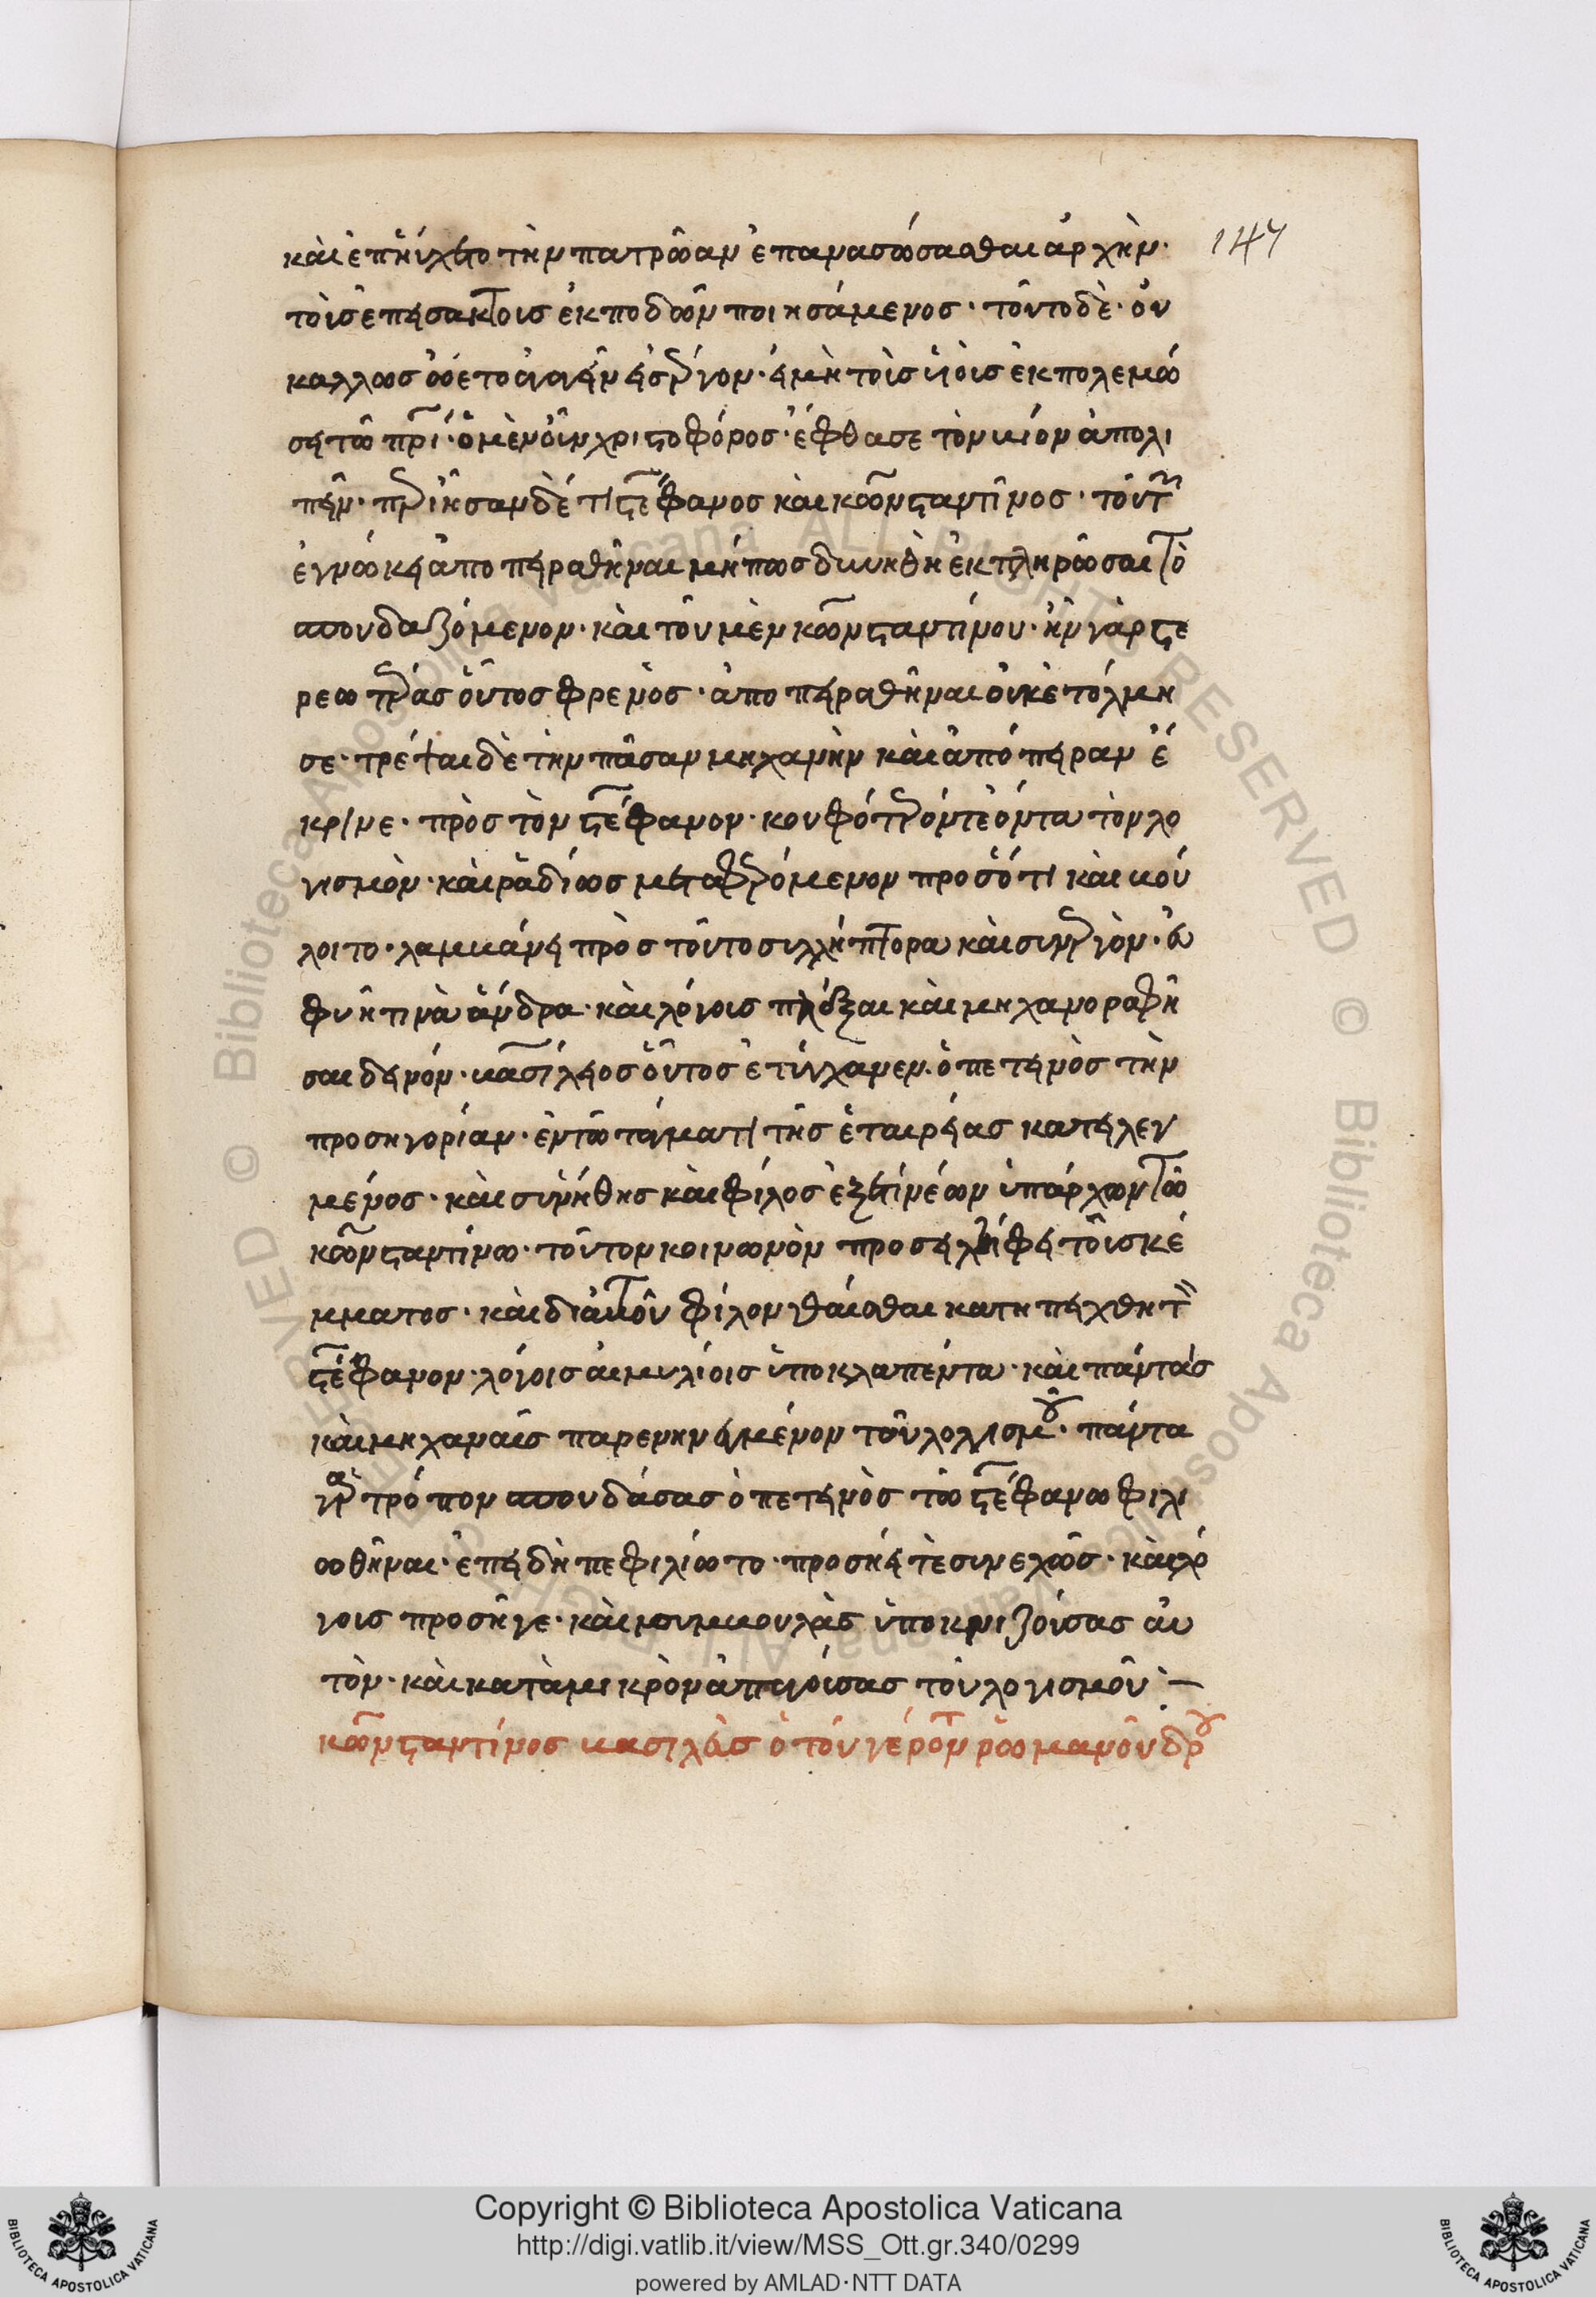 147
καὶ ἐπηύχετο τὴν πατρῶαν ἐπανασώσασθαι ἀρχὴν·
τοὺς ἐπεισάκτους ἐκποδὼν ποιησάμενος· τοῦτο δὲ οὐ
κ ἄλλως ᾤετο ἀνύειν εἰς ἔργον· εἰ μὴ τοὺς υἱοὺς ἐκπολεμώ
σει τῶ πρι· ὁ μὲν οὖν χριστοφόρος· ἔφθασε τὸν βίον ἀπολι
πεῖν· περιῆσαν δέ τι στέφανος καὶ κωνσταντῖνος· τούτων
ἐγνώκει ἀποπειραθῆναι μήπως δυνηθῆ ἐκπληρῶσαι τὸ
σπουδαζόμενον· καὶ τοῦ μὲν κωνσταντίνου· ἦν γὰρ στε
ρεωτέρας οὗτος φρενὸς· ἀποπειραθῆναι οὐκ ἐτόλμη
σε· τρέψαι δὲ τὴν πᾶσαν μηχανὴν καὶ ἀπόπειραν ἔ
κρινε· πρὸς τὸν στέφανον· κουφότερόν τε ὄντα τὸν λο
γισμὸν· καὶ ῥαδίως μεταφερόμενον πρὸς ὅτι καὶ βού
λοιτο· λαμβάνει πρὸς τοῦτο συλλήπτορα καὶ συνεργὸν· εὐ
φυῆ τινὰ ἄνδρα· καὶ λόγοις πλέξαι καὶ μηχανοραφῆ
σαι δεινόν· βασίλειος οὗτος ἐτύγχανεν· ὁ πετεινὸς τὴν
προσηγορίαν· ἐν τῶ τάγματι τῆς ἑταιρείας κατειλεγ
μένος· καὶ συνήθης καὶ φίλος ἐξ ἔτι νέων ὑπάρχων τῶ
κωνσταντίνω· τοῦτον κοινωνὸν προσειλήφει τοῦ σκέ
μματος· καὶ δι αὐτοῦ φίλον θέσθαι κατηπείχθη τὸν
στέφανον· λόγοις αἱμυλίοις ὑποκλαπέντα· καὶ πάντας
καὶ μηχαναῖς παρενηνεγμένον τοῦ λογισμοῦ· πάντα
γὰρ τρόπον σπουδάσας ὁ πετεινὸς τῶ στεφάνω φιλι
ωθῆναι· ἐπειδὴ πεφιλίωτο· προσῄει τὲ συνεχῶς· καὶ λό
γοις προσῆγε· καὶ συμβουλὰς ὑποκνιζούσας αὐ
τὸν· καὶ κατὰ μικρὸν ἀπαγούσας τοῦ λογισμοῦ :—
κωνσταντῖνος βασιλεὺς ὁ τὸν γέροντα ῥωμανὸν δρ
Copyright © Biblioteca Apostolica Vaticana
http://digi.vatlib.it/view/MSS_Ott.gr.340/0299
powered by AMLAD·NTT DATA
BIBLIOTECA APOSTOLICA VATICANA
BIBLIOTECA APOSTOLICA VATICANA